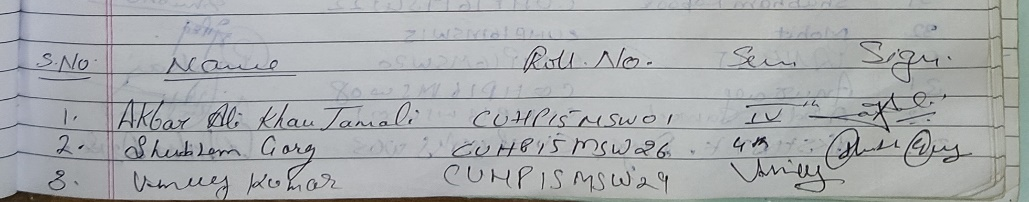 S.No. Name Roll. No. Sem Sign.
1. Akbar Ali Khan Jamali CUHP15MSW01 IV th
2. Shubham Garg CUHP15MSW26 4th
3. Vinay Kumar CUHP15MSW29 Vinay